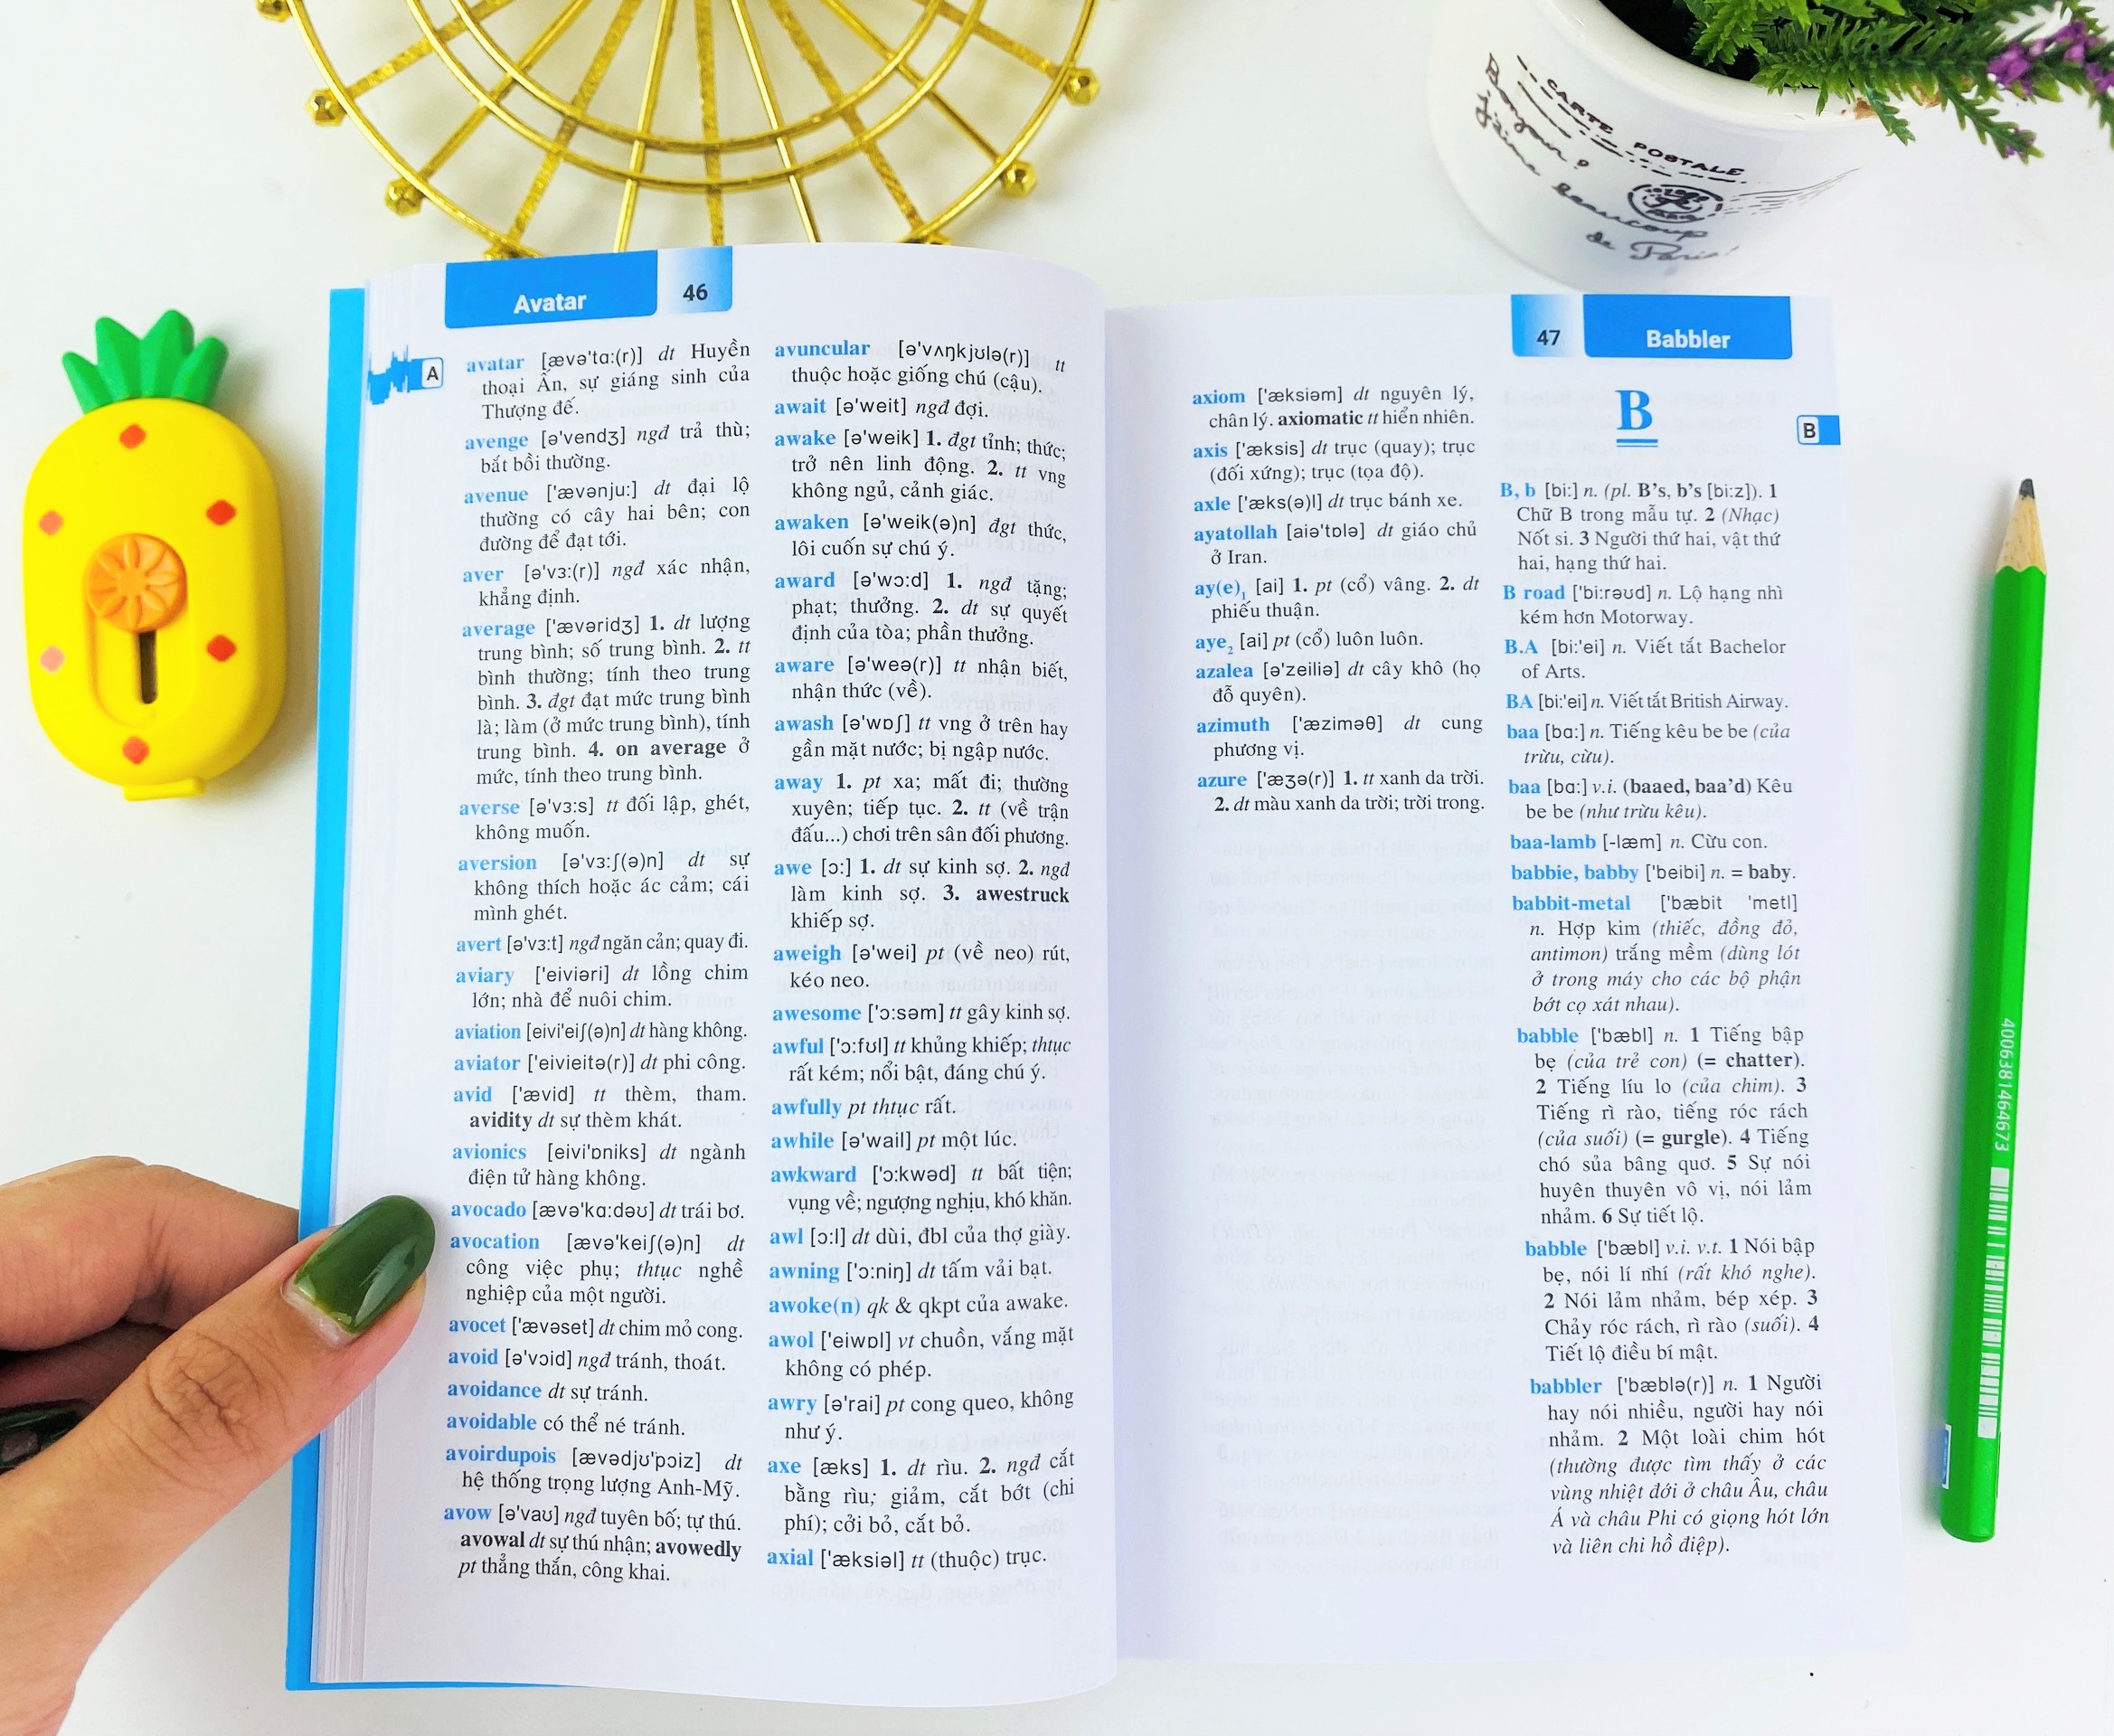 CARTE POSTALE
Bonjour
beaucoup
de Paris
Avatar
46
A
avatar [ævə'tɑ:(r)] dt Huyền
thoại Ấn, sự giáng sinh của
Thượng đế.
avenge [ə'vendʒ] ngđ trả thù;
bắt bồi thường.
avenue ['ævənju:] dt đại lộ
thường có cây hai bên; con
đường để đạt tới.
aver [ə'vɜ:(r)] ngđ xác nhận,
khẳng định.
average ['ævəridʒ] 1. dt lượng
trung bình; số trung bình. 2. tt
bình thường; tính theo trung
bình. 3. đgt đạt mức trung bình
là; làm (ở mức trung bình), tính
trung bình. 4. on average ở
mức, tính theo trung bình.
averse [ə'vɜ:s] tt đối lập, ghét,
không muốn.
aversion [ə'vɜ:ʃ(ə)n] dt sự
không thích hoặc ác cảm; cái
mình ghét.
avert [ə'vɜ:t] ngđ ngăn cản; quay đi.
aviary ['eiviəri] dt lồng chim
lớn; nhà để nuôi chim.
aviation [eivi'eiʃ(ə)n] dt hàng không.
aviator ['eivieitə(r)] dt phi công.
avid ['ævid] tt thèm, tham.
avidity dt sự thèm khát.
avionics [eivi'ɒniks] dt ngành
điện tử hàng không.
avocado [ævə'kɑ:dəʊ] dt trái bơ.
avocation [ævə'keiʃ(ə)n] dt
công việc phụ; thtục nghề
nghiệp của một người.
avocet ['ævəset] dt chim mỏ cong.
avoid [ə'vɔid] ngđ tránh, thoát.
avoidance dt sự tránh.
avoidable có thể né tránh.
avoirdupois [ævədjʊ'pɔiz] dt
hệ thống trọng lượng Anh-Mỹ.
avow [ə'vaʊ] ngđ tuyên bố; tự thú.
avowal dt sự thú nhận; avowedly
pt thẳng thắn, công khai.
avuncular [ə'vʌŋkjʊlə(r)] tt
thuộc hoặc giống chú (cậu).
await [ə'weit] ngđ đợi.
awake [ə'weik] 1. đgt tỉnh; thức;
trở nên linh động. 2. tt vng
không ngủ, cảnh giác.
awaken [ə'weik(ə)n] đgt thức,
lôi cuốn sự chú ý.
award [ə'wɔ:d] 1. ngđ tặng;
phạt; thưởng. 2. dt sự quyết
định của tòa; phần thưởng.
aware [ə'weə(r)] tt nhận biết,
nhận thức (về).
awash [ə'wɒʃ] tt vng ở trên hay
gần mặt nước; bị ngập nước.
away 1. pt xa; mất đi; thường
xuyên; tiếp tục. 2. tt (về trận
đấu...) chơi trên sân đối phương.
awe [ɔ:] 1. dt sự kinh sợ. 2. ngđ
làm kinh sợ. 3. awestruck
khiếp sợ.
aweigh [ə'wei] pt (về neo) rút,
kéo neo.
awesome ['ɔ:səm] tt gây kinh sợ.
awful ['ɔ:fʊl] tt khủng khiếp; thtục
rất kém; nổi bật, đáng chú ý.
awfully pt thtục rất.
awhile [ə'wail] pt một lúc.
awkward ['ɔ:kwəd] tt bất tiện;
vụng về; ngượng nghịu, khó khăn.
awl [ɔ:l] dt dùi, đbl của thợ giày.
awning ['ɔ:niŋ] dt tấm vải bạt.
awoke(n) qk & qkpt của awake.
awol ['eiwɒl] vt chuồn, vắng mặt
không có phép.
awry [ə'rai] pt cong queo, không
như ý.
axe [æks] 1. dt rìu. 2. ngđ cắt
bằng rìu; giảm, cắt bớt (chi
phí); cởi bỏ, cắt bỏ.
axial ['æksiəl] tt (thuộc) trục.
47
Babbler
axiom ['æksiəm] dt nguyên lý,
chân lý. axiomatic tt hiển nhiên.
axis ['æksis] dt trục (quay); trục
(đối xứng); trục (tọa độ).
axle ['æks(ə)l] dt trục bánh xe.
ayatollah [aiə'tɒlə] dt giáo chủ
ở Iran.
ay(e)₁ [ai] 1. pt (cổ) vâng. 2. dt
phiếu thuận.
aye₂ [ai] pt (cổ) luôn luôn.
azalea [ə'zeiliə] dt cây khô (họ
đỗ quyên).
azimuth ['æziməθ] dt cung
phương vị.
azure ['æʒə(r)] 1. tt xanh da trời.
2. dt màu xanh da trời; trời trong.
B
B
B, b [bi:] n. (pl. B's, b's [bi:z]). 1
Chữ B trong mẫu tự. 2 (Nhạc)
Nốt si. 3 Người thứ hai, vật thứ
hai, hạng thứ hai.
B road ['bi:rəʊd] n. Lộ hạng nhì
kém hơn Motorway.
B.A [bi:'ei] n. Viết tắt Bachelor
of Arts.
BA [bi:'ei] n. Viết tắt British Airway.
baa [bɑ:] n. Tiếng kêu be be (của
trừu, cừu).
baa [bɑ:] v.i. (baaed, baa'd) Kêu
be be (như trừu kêu).
baa-lamb [-læm] n. Cừu con.
babbie, babby ['beibi] n. = baby.
babbit-metal ['bæbit 'metl]
n. Hợp kim (thiếc, đồng đỏ,
antimon) trắng mềm (dùng lót
ở trong máy cho các bộ phận
bớt cọ xát nhau).
babble ['bæbl] n. 1 Tiếng bập
bẹ (của trẻ con) (= chatter).
2 Tiếng líu lo (của chim). 3
Tiếng rì rào, tiếng róc rách
(của suối) (= gurgle). 4 Tiếng
chó sủa bâng quơ. 5 Sự nói
huyên thuyên vô vị, nói lảm
nhảm. 6 Sự tiết lộ.
babble ['bæbl] v.i. v.t. 1 Nói bập
bẹ, nói lí nhí (rất khó nghe).
2 Nói lảm nhảm, bép xép. 3
Chảy róc rách, rì rào (suối). 4
Tiết lộ điều bí mật.
babbler ['bæblə(r)] n. 1 Người
hay nói nhiều, người hay nói
nhảm. 2 Một loài chim hót
(thường được tìm thấy ở các
vùng nhiệt đới ở châu Âu, châu
Á và châu Phi có giọng hót lớn
và liên chi hồ điệp).
4006381464673